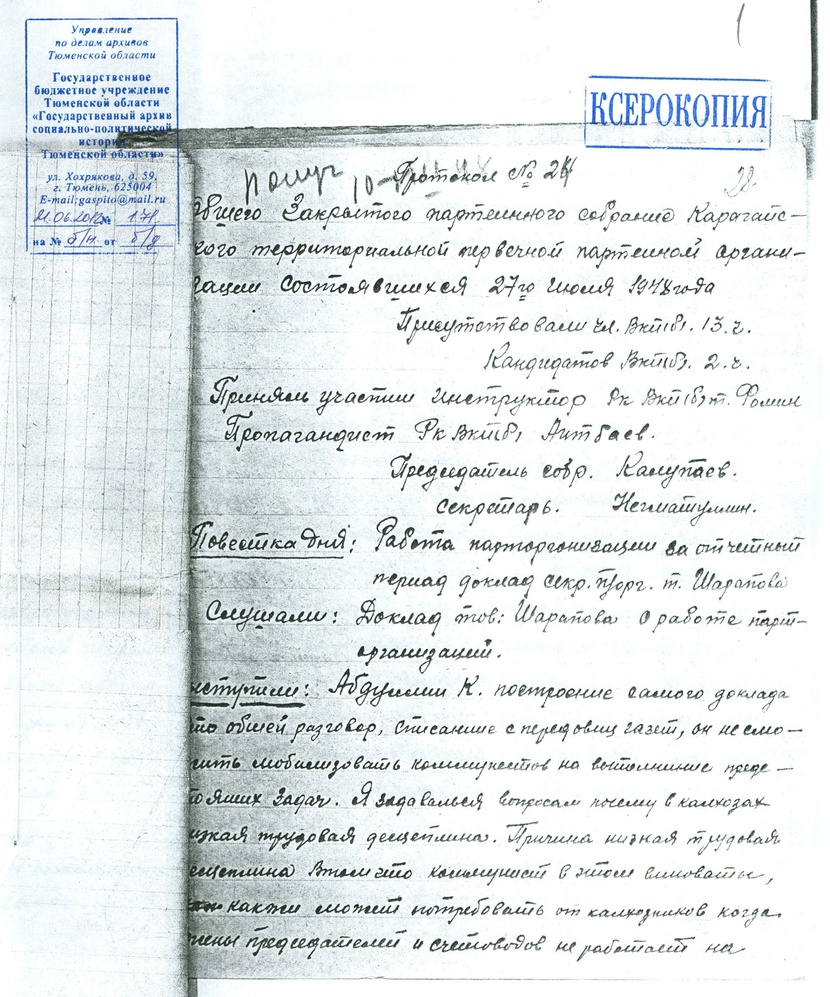 1
Управление
по делам архивов
Тюменской области
Государственное
бюджетное учреждение
Тюменской области
«Государственный архив
социально-политической
истории
Тюменской области»
ул. Хохрякова, д. 59,
г. Тюмень, 625004
E-mail:gaspito@mail.ru
21.06.2012 № 171
на № б/н от б/д
КСЕРОКОПИЯ
Протокол № 24
28.
бщего Закрытого партеинного собрание Карагайс-
кого территориальной первечной партеиной органи-
зации состоявшихся 27го Июля 1948 года
Присутствовали чл. Вкп(б). 13. ч.
Кандидатов Вкп(б). 2. ч.
Приняль участии инструктор Рк Вкп(б) т. Фомин
Пропагандист Рк Вкп(б) Аитбаев.
Председатель собр. Калупаев.
секретарь. Негматуллин.
Повестка дня: Работа парторгонизации за отчетный
период доклад секр. п/орг. т. Шарапова
Слушали: Доклад тов: Шарапова о работе парт-
организаций.
ыступили: Абдуллин К. построение самого доклада
это общей разговор, списанше с передовиц газет, он не смо-
жить мобилизовать коммунестов на выполниние предс-
тоящих задач. Я задавалься вопросам почему в калхозах
изкая трудовая десцеплина. Причина низкая трудовая
есцеплина втом что коммунист в этом виноваты,
какжи может потребовать от калхозников когда
жены председателей и счетоводов не работает на